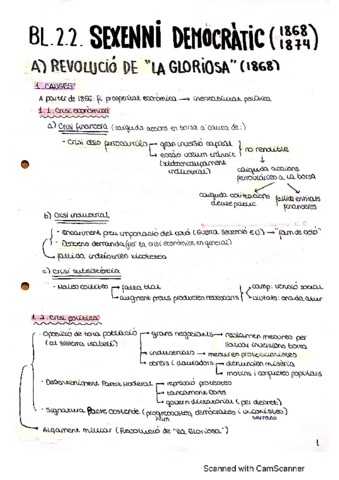 BL.2.2. SEXENNI DEMOCRÀTIC (1868 1874)
A) REVOLUCIÓ DE "LA GLORIOSA" (1868)
1. CAUSES
A partir de 1866: fi prosperitat econòmica → inestabilitat política
1.1. Crisi econòmica
a) Crisi financera (caiguda accions en borsa a causa de:)
- Crisi deute ferrocarrils
gran inversió capital
escàs volum trànsit
industrial)
no rendible
caiguda accions
ferroviàries a la borsa
caiguda cotitzacions deute públic
fallida entitats financeres
b) Crisi industrial
- Encariment preu importació del cotó (Guerra Secessió EU) → "fam de cotó"
- Descens demanda (per la crisi econòmica en general)
- fallida indústries tèxtils
c) Crisi subsistència
- Males collites
falta blat
augment preus productes necessaris
camp: tensió social
ciutats: onada atur
1.2. Crisi política
- Oposició de tota població (al sistema isabelí)
grans negociants → reclamen mesures per salvar inversions borsa
industrials → mesures proteccionistes
obrers i llauradors
denuncien misèria
motins i conflictes populars
- Desenteniment Partit Moderat
repressió protestes
tancament Corts
govern dictatorial (per decret)
- Signatura Pacte Ostende (progressistes, demòcrates i unionistes)
Prim
Serrano
- Alçament militar (Revolució de "La Gloriosa")
1
Scanned with CamScanner